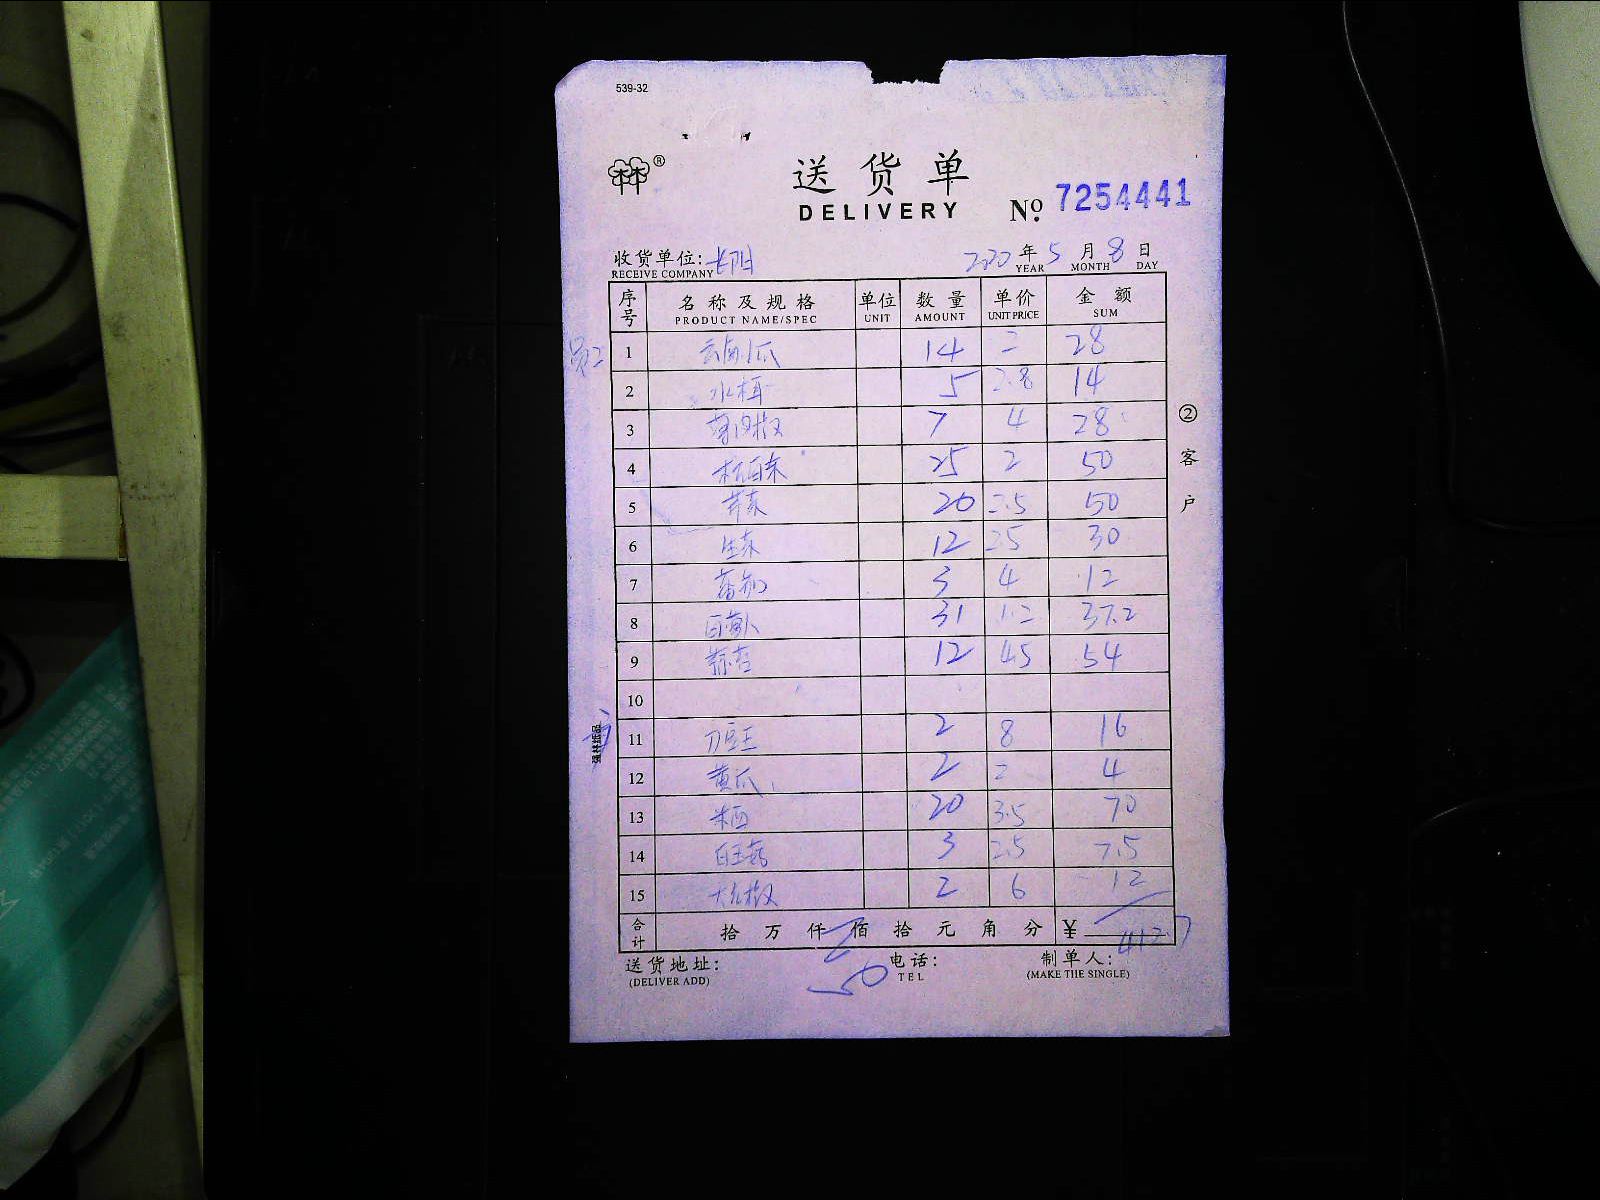 539-32
林®
送货单
DELIVERY
No. 7254441
收货单位: 长阳 2020年5月8日
RECEIVE COMPANY YEAR MONTH DAY
序号 名称及规格 单位 数量 单价 金额
PRODUCT NAME/SPEC UNIT AMOUNT UNIT PRICE SUM
1 云南小瓜 14 2 28
2 水 5 2.8 14
3 7 4 28
4 杭白菜 25 2 50
5 芹菜 20 2.5 50
6 生菜 12 2.5 30
7 番茄 3 4 12
8 31 1.2 37.2
9 蒜苔 12 4.5 54
10
11 刀豆王 2 8 16
12 黄瓜 2 2 4
13 米酒 20 3.5 70
14 白玉菇 3 2.5 7.5
15 2 6 12
合计 拾 万 仟 佰 拾 元 角 分 ¥ 412.7
送货地址: 电话: 制单人:
(DELIVER ADD) TEL (MAKE THE SINGLE)
②客户
强林纸品